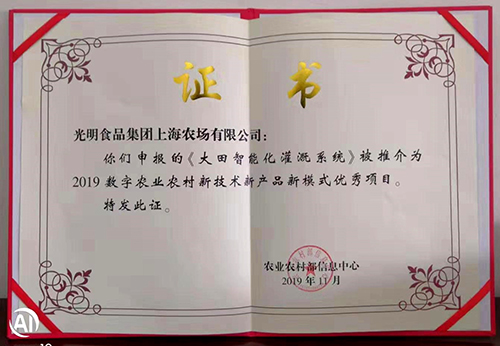 证 书
光明食品集团上海农场有限公司：
你们申报的《大田智能化灌溉系统》被推介为
2019数字农业农村新技术新产品新模式优秀项目。
特发此证。
农业农村部信息中心
2019年11月
AI